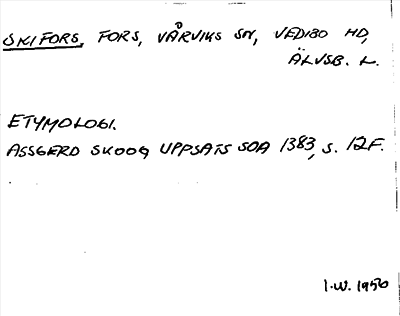 SKIFORS, FORS, VÅRVIKS SN, VEDBO HD,
ÄLVSB. L.
ETYMOLOGI.
ASSGERD SKOOG UPPSATS SOA 1383, S. 12F.
I.W. 1950